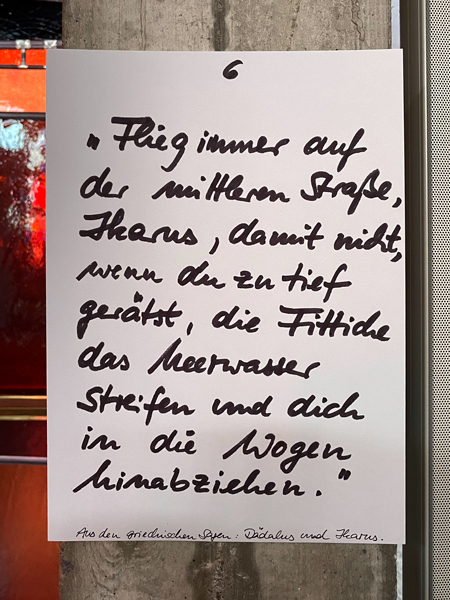 6
„Flieg immer auf
der mittleren Straße,
Ikarus, damit nicht,
wenn du zu tief
gerätst, die Fittiche
das Meerwasser
streifen und dich
in die Wogen
hinabziehen."
Aus den griechischen Sagen: Dädalus und Ikarus.